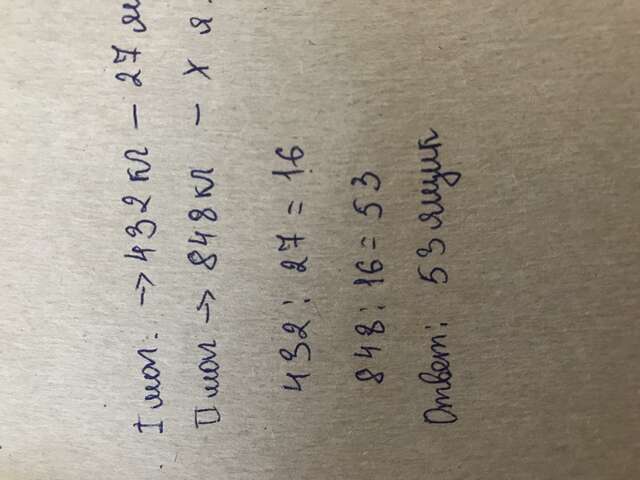 I маг. → 432 кг – 27 я
II маг → 848 кг – x я.
432 : 27 = 16
848 : 16 = 53
Ответ: 53 ящик